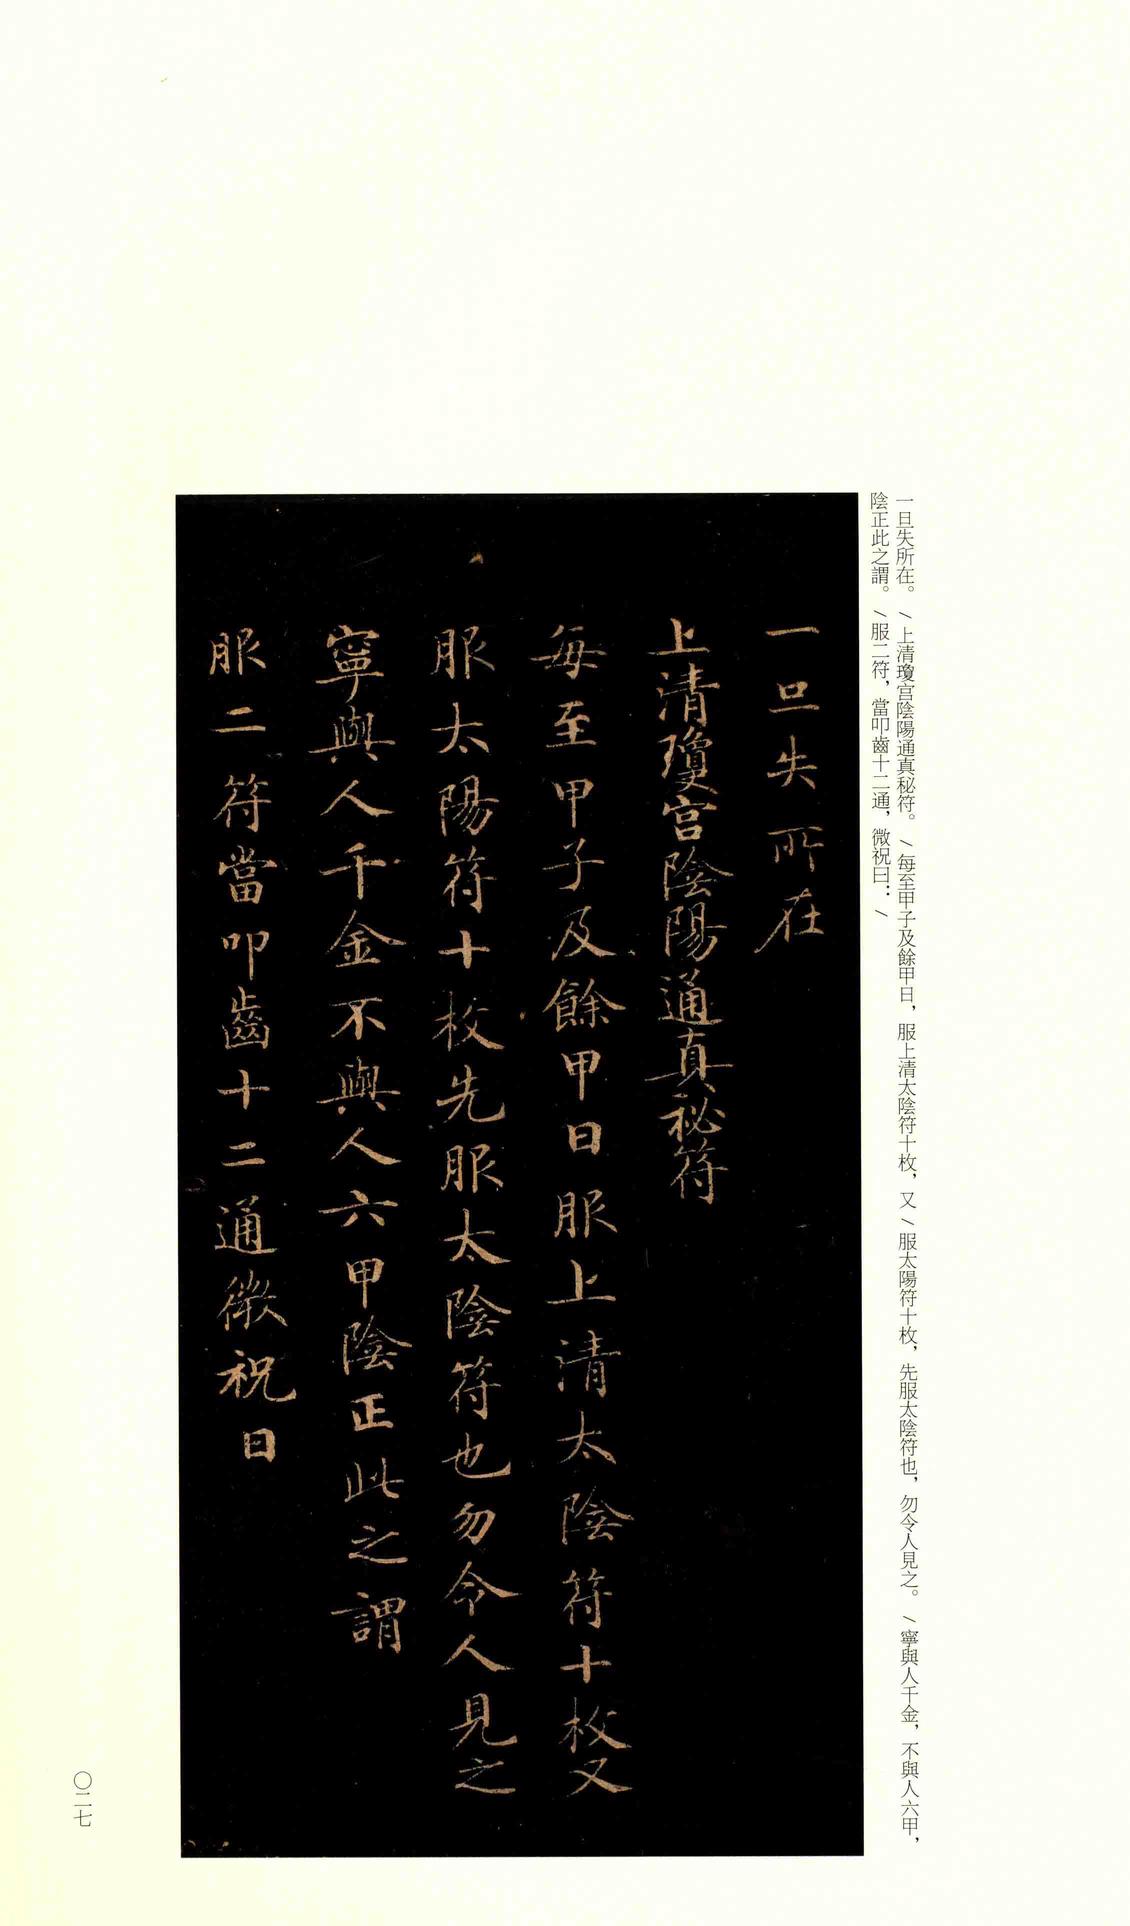 一旦失所在。/上清瓊宮陰陽通真秘符。/每至甲子及餘甲日，服上清太陰符十枚，又/服太陽符十枚，先服太陰符也，勿令人見之。/寧與人千金，不與人六甲，
陰正此之謂。/服二符，當叩齒十二通，微祝曰：/
一旦失所在
上清瓊宮陰陽通真祕符
每至甲子及餘甲日服上清太陰符十枚又
服太陽符十枚先服太陰符也勿令人見之
寧與人千金不與人六甲陰正此之謂
服二符當叩齒十二通微祝曰
〇二七